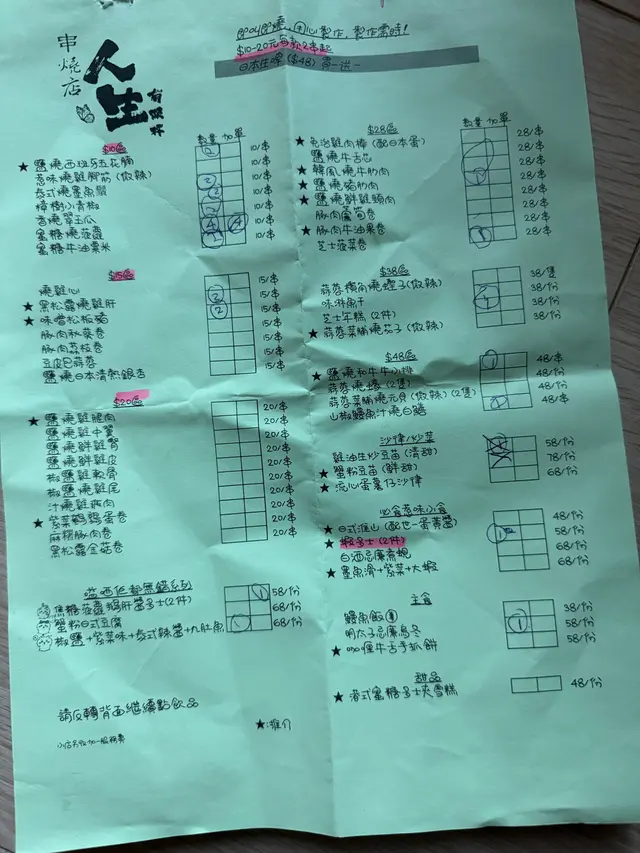 串燒店
人生
有限杯
即叫即燒、用心製作，製作需時！
$10-20元每款2串起
日本生啤($48) 買一送一
$10區 數量 加單
★鹽燒西班牙五花腩 2 10/串
惹味燒雞腳筋(微辣) 10/串
泰式燒墨魚鬚 2 10/串
樟樹小青椒 2 10/串
香燒翠玉瓜 10/串
蜜糖燒菠蘿 10/串
蜜糖牛油粟米 10/串
$15區
燒雞心 15/串
★黑松露燒雞肝 2 15/串
★味噌松板豬 2 15/串
豚肉秋葵卷 15/串
豚肉荔枝卷 15/串
豆皮巴蒜蓉 15/串
鹽燒日本清熱銀杏 15/串
$20區
★鹽燒雞腿肉 20/串
鹽燒雞中翼 20/串
鹽燒鮮雞腎 20/串
鹽燒鮮雞皮 20/串
椒鹽雞軟骨 20/串
椒鹽燒雞尾 20/串
汁燒雞 肉 20/串
★紫菜鵪鶉蛋卷 20/串
麻糬豚肉卷 20/串
黑松露金菇卷 20/串
系列
焦糖菠蘿鵝肝醬多士(2件) 1 58/份
蟹粉日式豆腐 68/份
椒鹽+紫菜味+泰式辣醬+九肚魚 68/份
請反轉背面繼續點飲品
小店另收加一服務費
★:推介
$28區 數量 加單
★免治雞肉棒(配日本蛋) 28/串
鹽燒牛舌芯 28/串
★韓風燒牛肋肉 28/串
★鹽燒豬肋肉 28/串
★鹽燒鮮雞頸肉 28/串
豚肉蘆筍卷 28/串
★豚肉牛油果卷 1 28/串
芝士菠菜卷
$38區
蒜蓉欖角燒蟶子(微辣) 38/隻
味淋魚干 38/份
芝士年糕(2件) 38/份
★蒜蓉菜脯燒茄子(微辣) 38/份
$48區
★鹽燒和牛牛小排 48/串
蒜蓉燒蠔(2隻) 48/份
蒜蓉菜脯燒元貝(微辣)(2隻) 48/份
山椒鰻魚汁燒白鱔 48/串
沙律/炒菜
雞油生炒豆苗(清甜) 58/份
★蟹粉豆苗(鮮甜) 78/份
★流心蛋薯仔沙律 68/份
必食惹味小食
★日式淮山(配芝一蛋黃醬) 48/份
★蝦多士(2件) 1 58/份
白酒忌廉煮蜆 68/份
★墨魚滑+紫菜+大蝦 68/份
主食
鰻魚飯 38/份
明太子忌廉烏冬 1 58/份
★咖喱牛舌手抓餅 58/份
甜品
★港式蜜糖多士夾雪糕 48/份